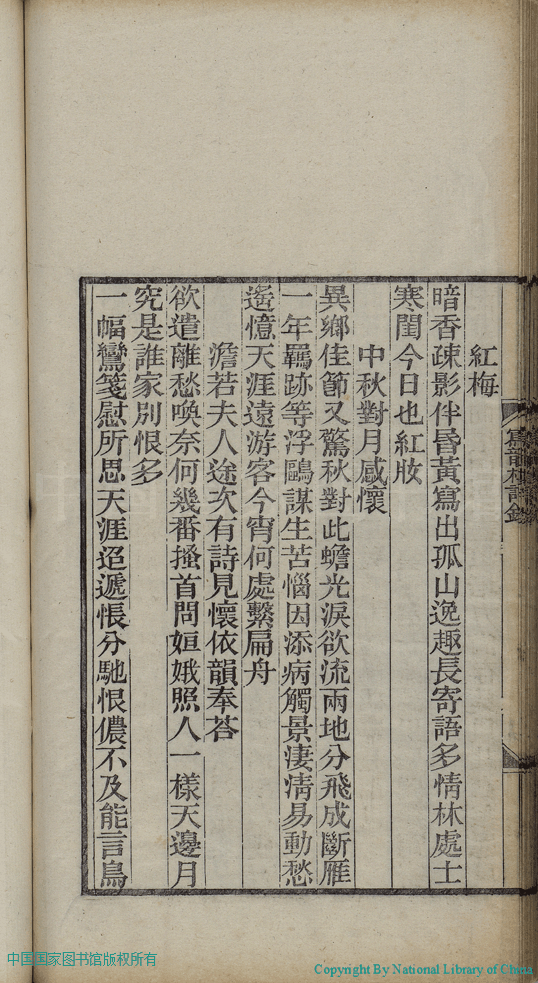 紅梅
暗香疎影伴昏黃寫出孤山逸趣長寄語多情林處士
寒閨今日也紅妝
中秋對月感懷
異鄉佳節又驚秋對此蟾光淚欲流兩地分飛成斷雁
一年羈跡等浮鷗謀生苦惱因添病觸景淒淸易動愁
遙憶天涯遠游客今宵何處繫扁舟
澹若夫人途次有詩見懷依韻奉荅
欲遣離愁喚奈何幾番搔首問姮娥照人一樣天邊月
究是誰家別恨多
一幅鸞箋慰所思天涯迢遞悵分馳恨儂不及能言鳥
中国国家图书馆版权所有
Copyright By National Library of China